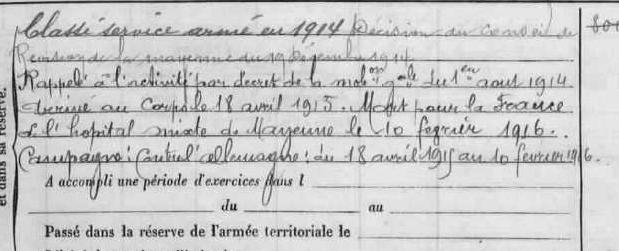 Classé service armé en 1914 Décision du conseil de
Revision de la mayenne du 19 Décembre 1914
Rappelé à l'activité par decret de la mob.on g.ale du 1er aout 1914
arrivé au Corps le 18 avril 1915. Mort pour la France
à l'hopital mixte de Mayenne le 10 fegvrier 1916..
Campagne: Contre l'allemagne: du 18 avril 1915 au 10 fevrier 1916.
A accompli une période d'exercices dans l
du au
Passé dans la réserve de l'armée territoriale le
et dans sa réserve.